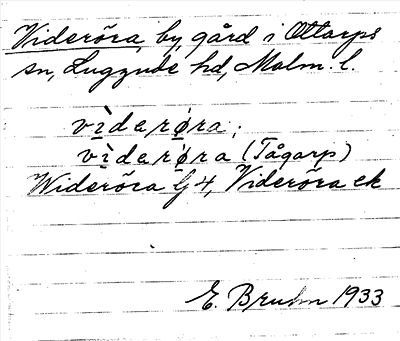 Videröra, by, gård i Ottarps
sn, Luggude hd, Malm. l.
vìdarøra;
vìdarøra (Tågarp)
Wideröra lj 4, Videröra ek
E. Bruhn 1933